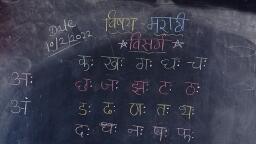 Date
10/2/2022
विषय मराठी
*विसर्ग*
कः खः गः घः चः
अः
छः जः झः टः ठः
अं
डः ढः णः तः थः
दः धः नः पः फः